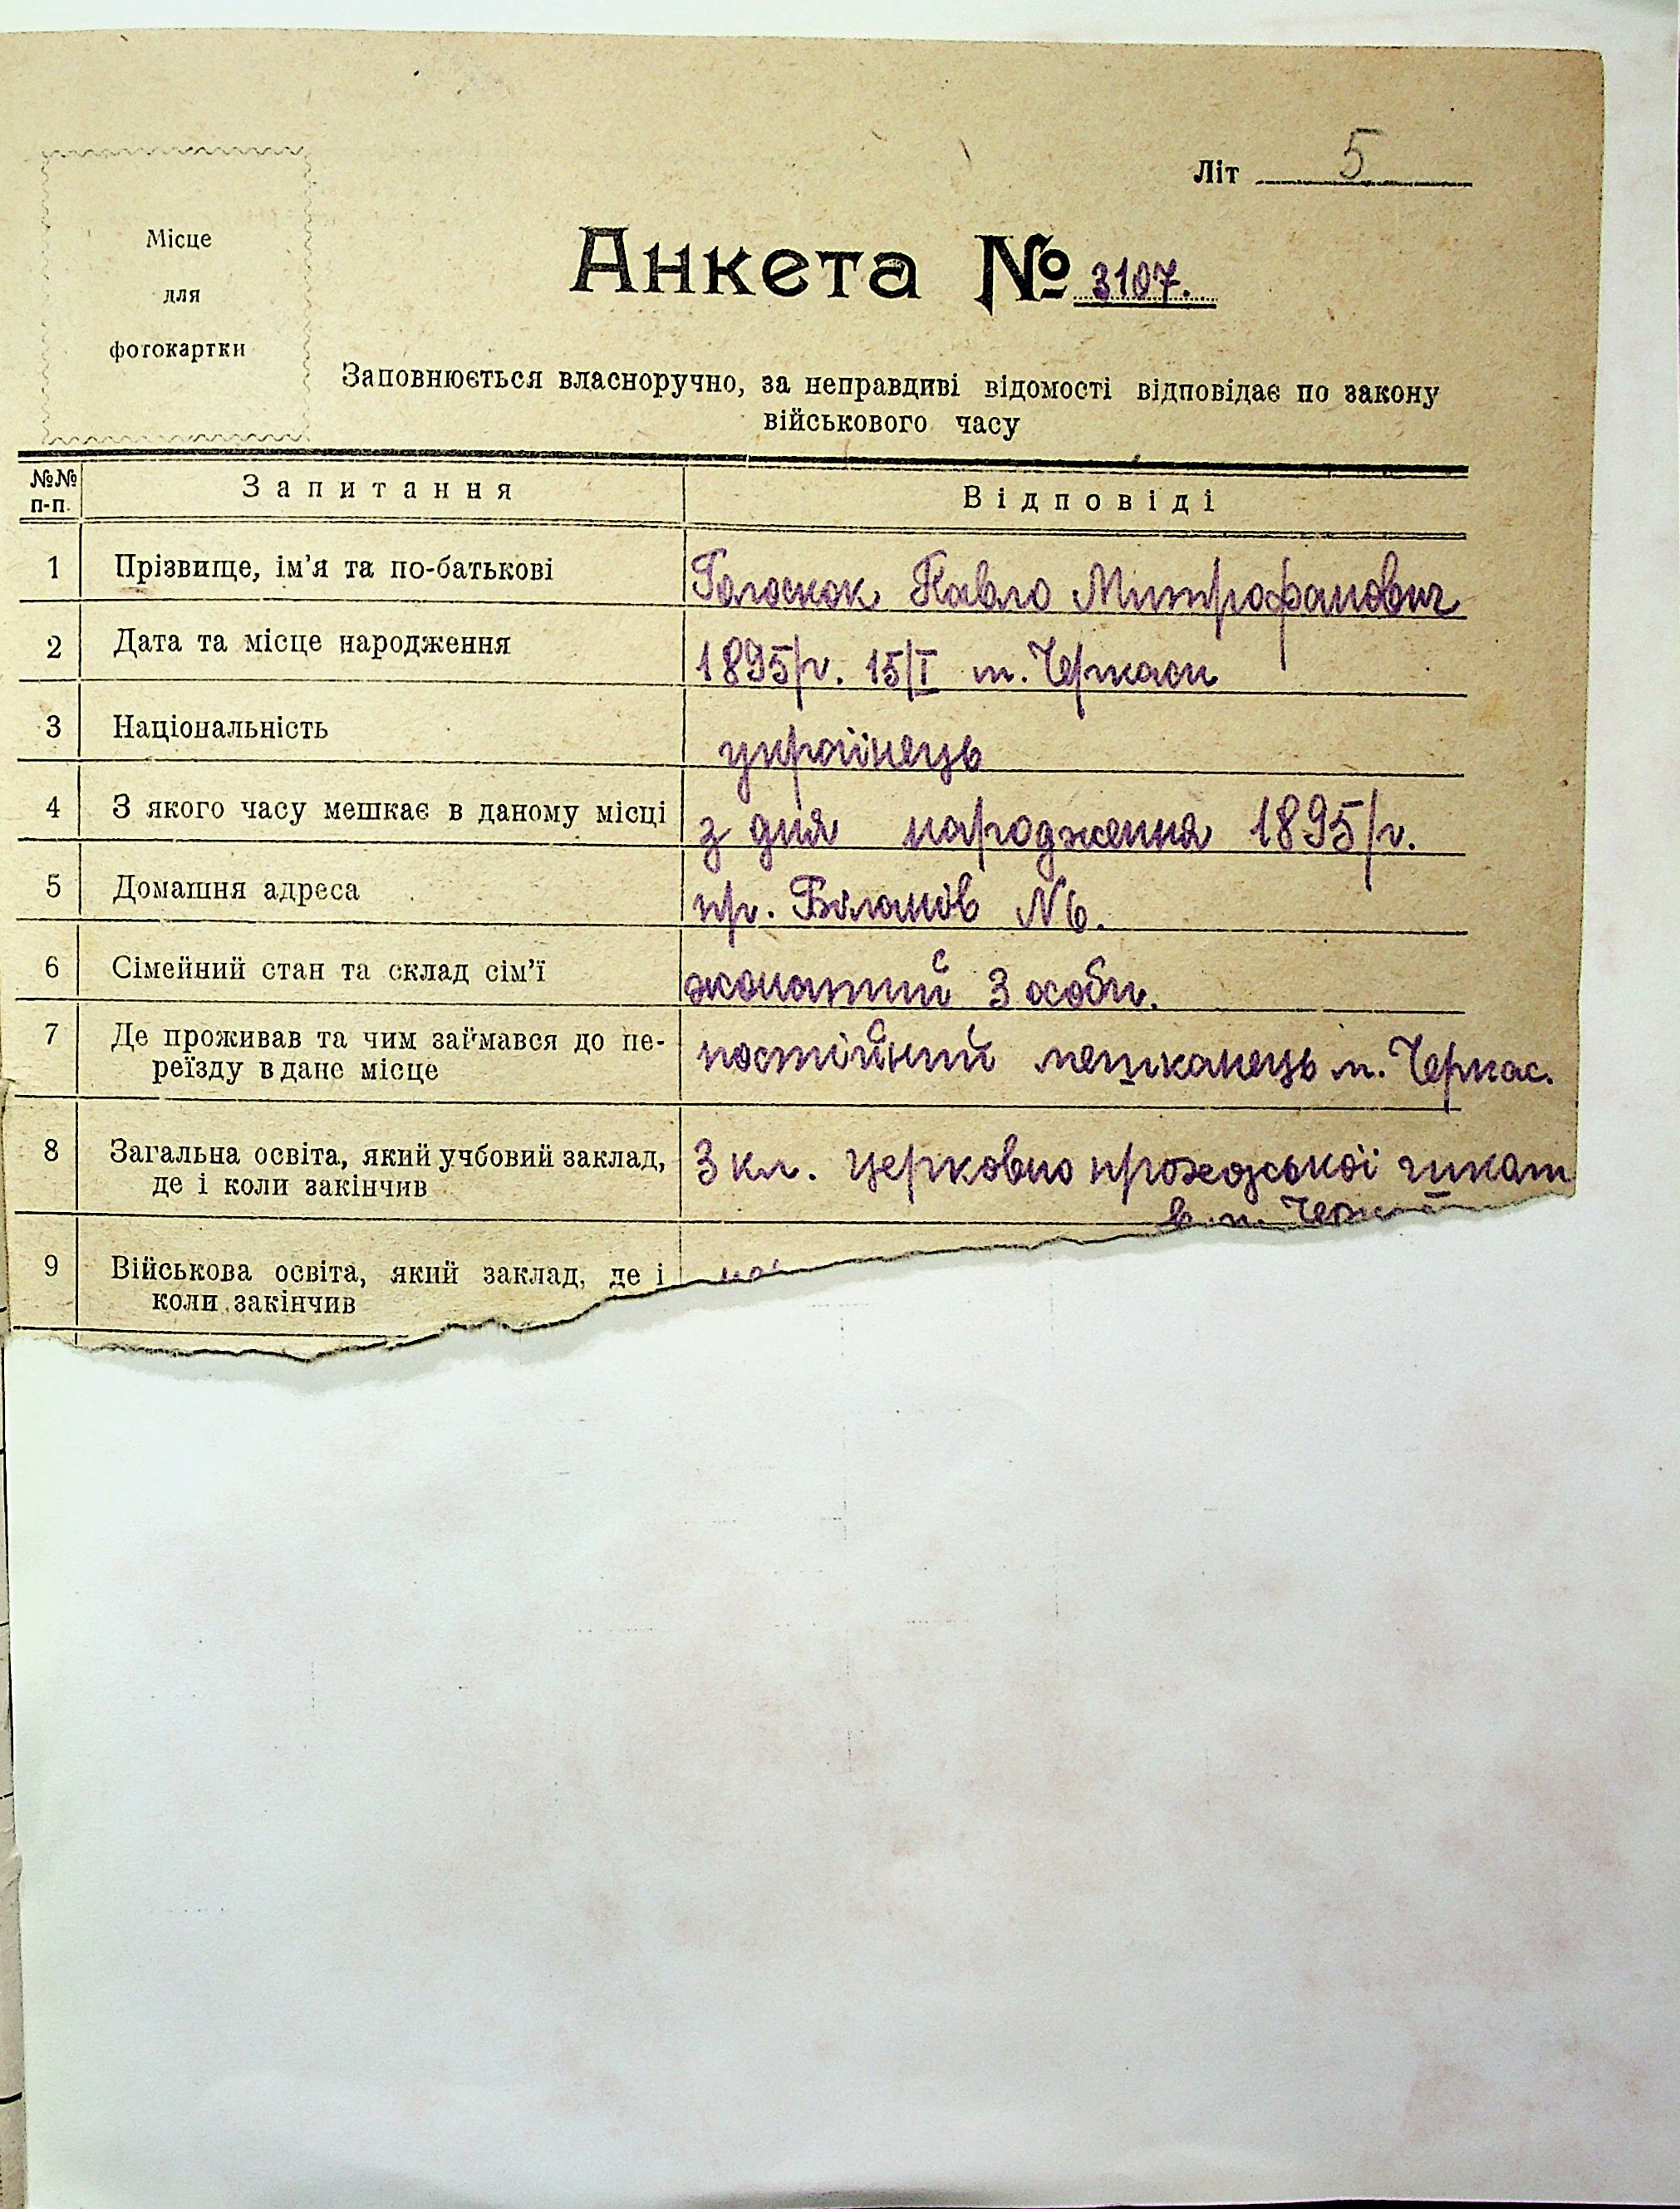 Літ 5
Місце
для
фотокартки
Анкета № 3107.
Заповнюється власноручно, за неправдиві відомості відповідає по закону
військового часу
№№ п-п. Запитання Відповіді
1 Прізвище, ім'я та по-батькові Голоскок Павло Митрофанович
2 Дата та місце народження 1895/р. 15/I м. Черкаси
3 Національність українець
4 З якого часу мешкає в даному місці з дня народження 1895/р.
5 Домашня адреса пр. №6.
6 Сімейний стан та склад сім'ї жонатий 3 особи.
7 Де проживав та чим займався до пе-
реїзду в дане місце постійний мешканець м. Черкас.
8 Загальна освіта, який учбовий заклад, 3 кл. церковно
де і коли закінчив
в м.
9 Військова освіта, який заклад, де і
коли закінчив